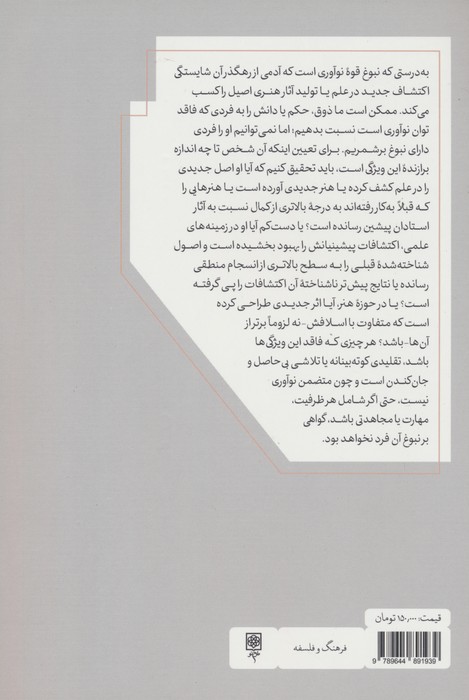 به‌درستی که نبوغ قوۀ نوآوری است که آدمی از رهگذر آن شایستگی
اکتشاف جدید در علم یا تولید آثار هنری اصیل را کسب
می‌کند. ممکن است ما ذوق، حکم یا دانش را به فردی که فاقد
توان نوآوری است نسبت بدهیم؛ اما نمی‌توانیم او را فردی
دارای نبوغ برشمریم. برای تعیین اینکه آن شخص تا چه اندازه
برازندۀ این ویژگی است، باید تحقیق کنیم که آیا او اصل جدیدی
را در علم کشف کرده یا هنر جدیدی آورده است یا هنرهایی را
که قبلاً به‌کار رفته‌اند به درجۀ بالاتری از کمال نسبت به آثار
استادان پیشین رسانده است؟ یا دست‌کم آیا او در زمینه‌های
علمی، اکتشافات پیشینیانش را بهبود بخشیده است و اصول
شناخته‌شدۀ قبلی را به سطح بالاتری از انسجام منطقی
رسانده یا نتایج پیش‌تر ناشناختۀ آن اکتشافات را پی گرفته
است؟ یا در حوزۀ هنر، آیا اثر جدیدی طراحی کرده
است که متفاوت با اسلافش -نه لزوماً برتر از
آن‌ها- باشد؟ هر چیزی که فاقد این ویژگی‌ها
باشد، تقلیدی کوته‌بینانه یا تلاشی بی‌حاصل و
جان‌کندن است و چون متضمن نوآوری
نیست، حتی اگر شامل هر ظرفیت،
مهارت یا مجاهدتی باشد، گواهی
بر نبوغ آن فرد نخواهد بود.
قیمت: ۱۵۰,۰۰۰ تومان
فرهنگ و فلسفه
9 789644 891939